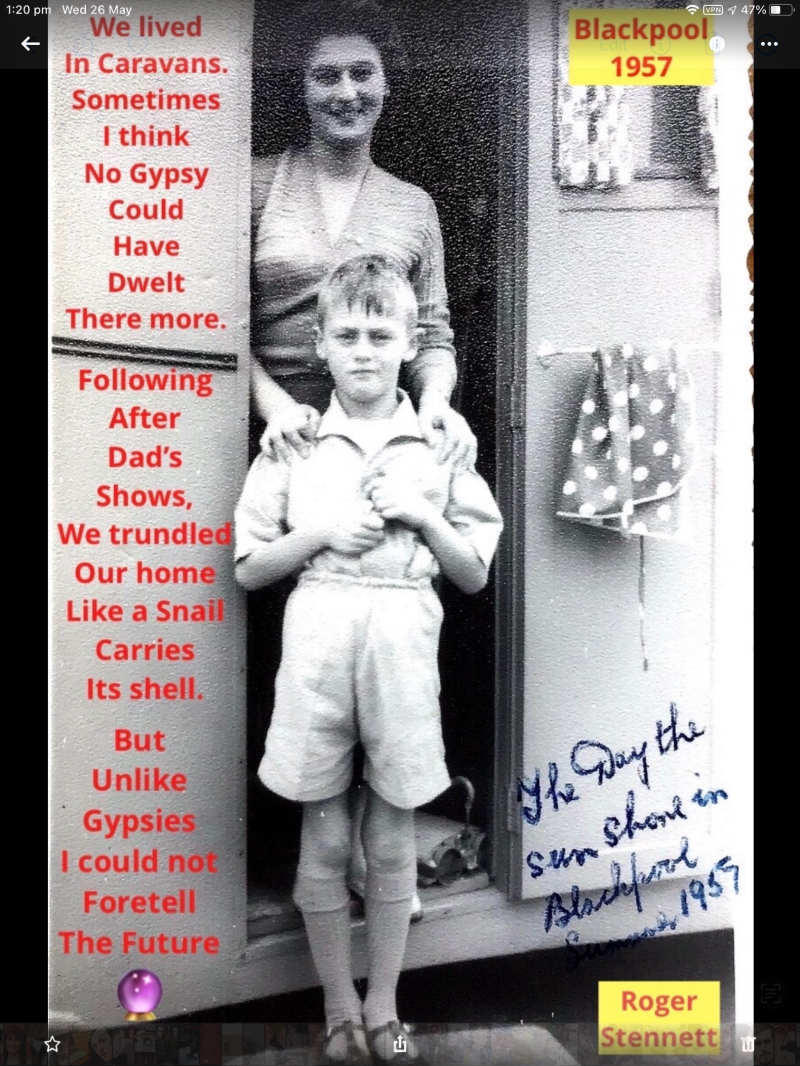 1:20 pm Wed 26 May
VPN 47%
We lived
In Caravans.
Sometimes
I think
No Gypsy
Could
Have
Dwelt
There more.
Following
After
Dad's
Shows,
We trundled
Our home
Like a Snail
Carries
Its shell.
But
Unlike
Gypsies
I could not
Foretell
The Future
Blackpool
1957
Edit
The Day the
sun shone in
Blackpool
Summer 1957
Roger
Stennett